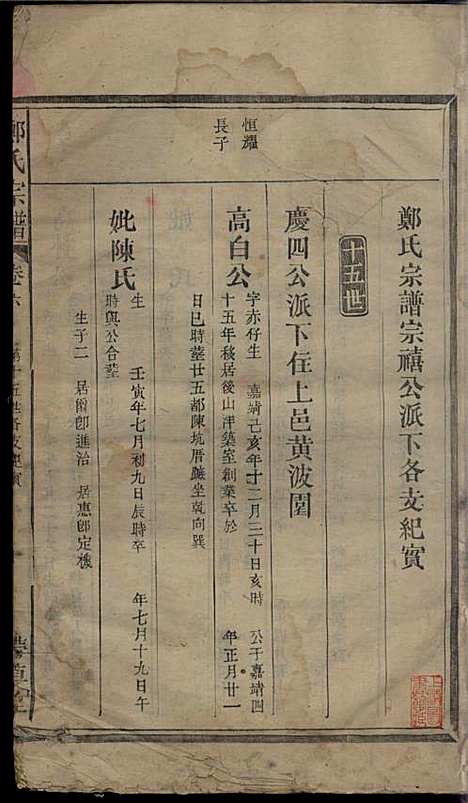 鄭氏宗譜宗禧公派下各支紀實
十五世
慶四公派下住上邑黄波圍
恒耀
長子
高白公
字赤仔生 嘉靖己亥年十二月三十日亥時 公于嘉靖四
十五年移居後山洋築室創業卒於 年正月廿一
日巳時塟廿五都陳坑厝 坐乾向巽
妣陳氏
生 壬寅年七月初九日辰時卒 年七月十九日午
時與公合塟
生子二 居爵卽進治 居惠卽定機
鄭氏宗譜
卷六
第十五世各支紀實